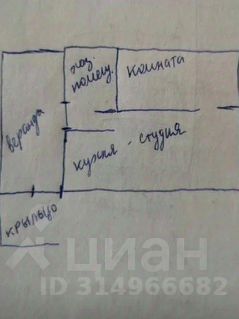 хоз
помещ.
комната
веранда
кухня - студия
крыльцо
циан
ID 314966682